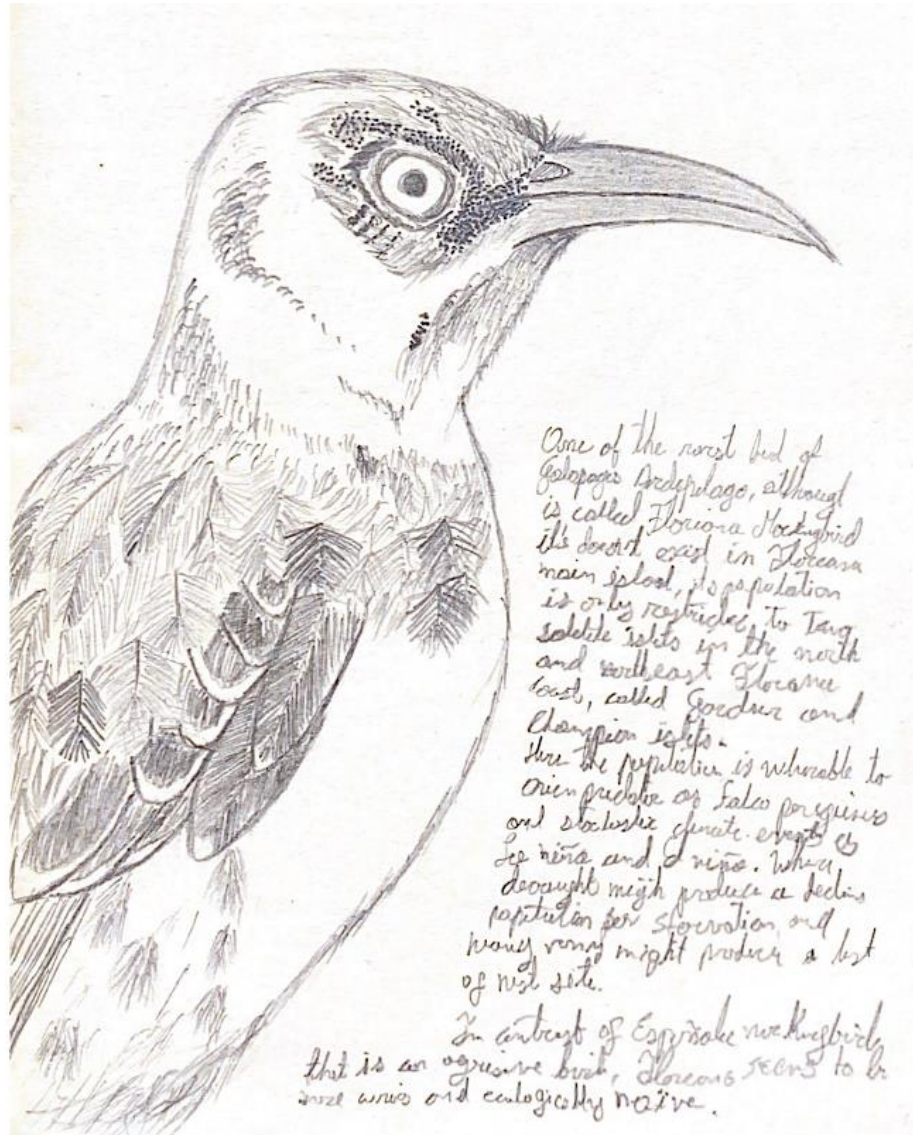 One of the rarest bird of
Galapagos Archipelago, although
is called Floreana Mockingbird
it's doesn't exist in Floreana
main island, its population
is only restricted to
satelite islets in the north
and northeast Floreana
coast, called Gardner and
Champion islets.
Here the population is vulnerable to
predator as Falco peregrinus
and stochastic climate events as
la niña and el niño. When
drought might produce a
population per starvation and
might produce a lost
of nest site.
In contrast of Española mockingbird,
that is an agrisive bird, Floreana seems to be
more and ecologically naïve.